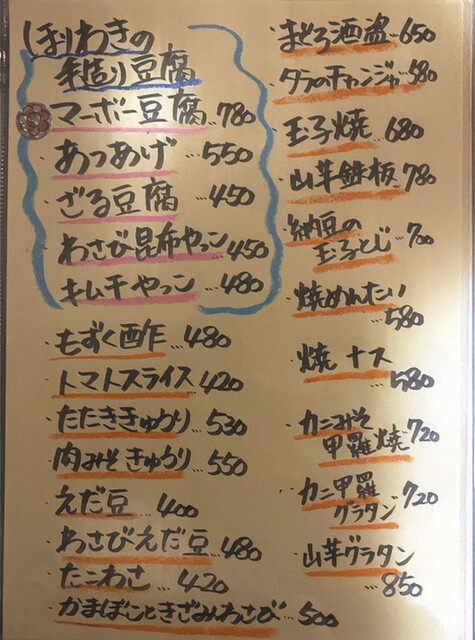 ほりわきの
手造り豆腐
マーボー豆腐…780
・あつあげ…550
・ざる豆腐…450
・わさび昆布やっこ…450
・キムチやっこ…480
・もずく酢…480
・トマトスライス…420
・たたききゅうり…530
・肉みそきゅうり…550
・えだ豆…400
・わさびえだ豆…480
・たこわさ…420
・かまぼこときざみわさび…500
・まぐろ酒盗…650
・タラのチャンジャ…580
・玉子焼…680
・山芋鉄板…780
・納豆の
玉子とじ…700
・焼めんたい
…580
・焼ナス
…580
・カニみそ
甲羅焼…720
・カニ甲羅
グラタン…720
・山芋グラタン
…850